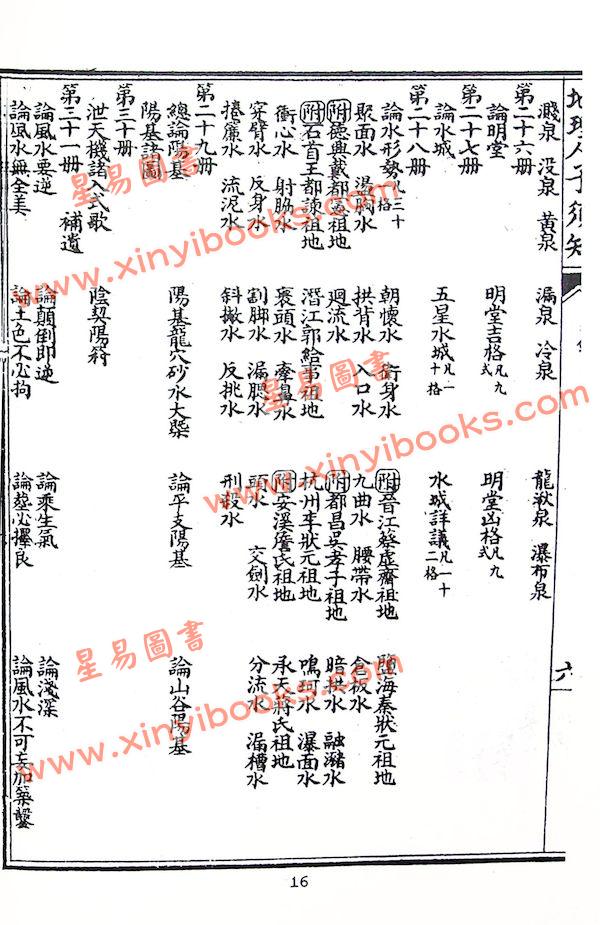 地理人子須知
六
濺泉 没泉 黄泉 漏泉 冷泉 龍湫泉 瀑布泉
第二十六册
論明堂 明堂吉格凡九式 明堂凶格凡九式
第二十七册
論水城 五星水城凡一十格 水城詳議凡一十二格
第二十八册
論水形勢凡三十格 朝懷水 衛身水 附晉江蔡虚齋祖地 臨海秦狀元祖地
聚面水 盪胸水 拱背水 入口水 九曲水 腰帶水 倉板水
附德興戴都憲祖地 廻流水 附都昌吳孝子祖地 暗拱水 融瀦水
附石首王都諫祖地 潛江郭給事祖地 杭州李狀元祖地 鳴珂水 瀑面水
衝心水 射脇水 裹頭水 牽鼻水 附安溪詹氏祖地 承天蔣氏祖地
穿臂水 反身水 割脚水 漏腮水 頭水 交劍水 分流水 漏槽水
捲簾水 流泥水 斜撇水 反挑水 刑殺水
第二十九册
總論陽基 陽基龍穴砂水大槩 論平支陽基 論山谷陽基
陽基諸圖
第三十册
泄天機諸入式歌 陰契陽符
第三十一册 補遺
論風水要逆 論顛倒即逆 論乘生氣 論淺深
論風水無全美 論土色不必拘 論塟必擇良 論風水不可妄加築鑿
星易圖書
www.xinyibooks.com
星易圖書
www.xinyibooks.com
星易圖書
www.xinyibooks.com
星易圖書
www.xinyibooks.com
16